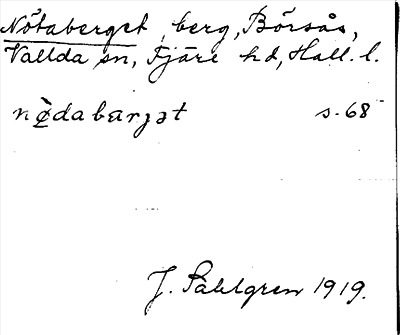 Nötaberget, berg, Börsås,
Vallda sn, Fjäre hd, Hall. l.
nø̀dabærjət s. 68
J. Sahlgren 1919.